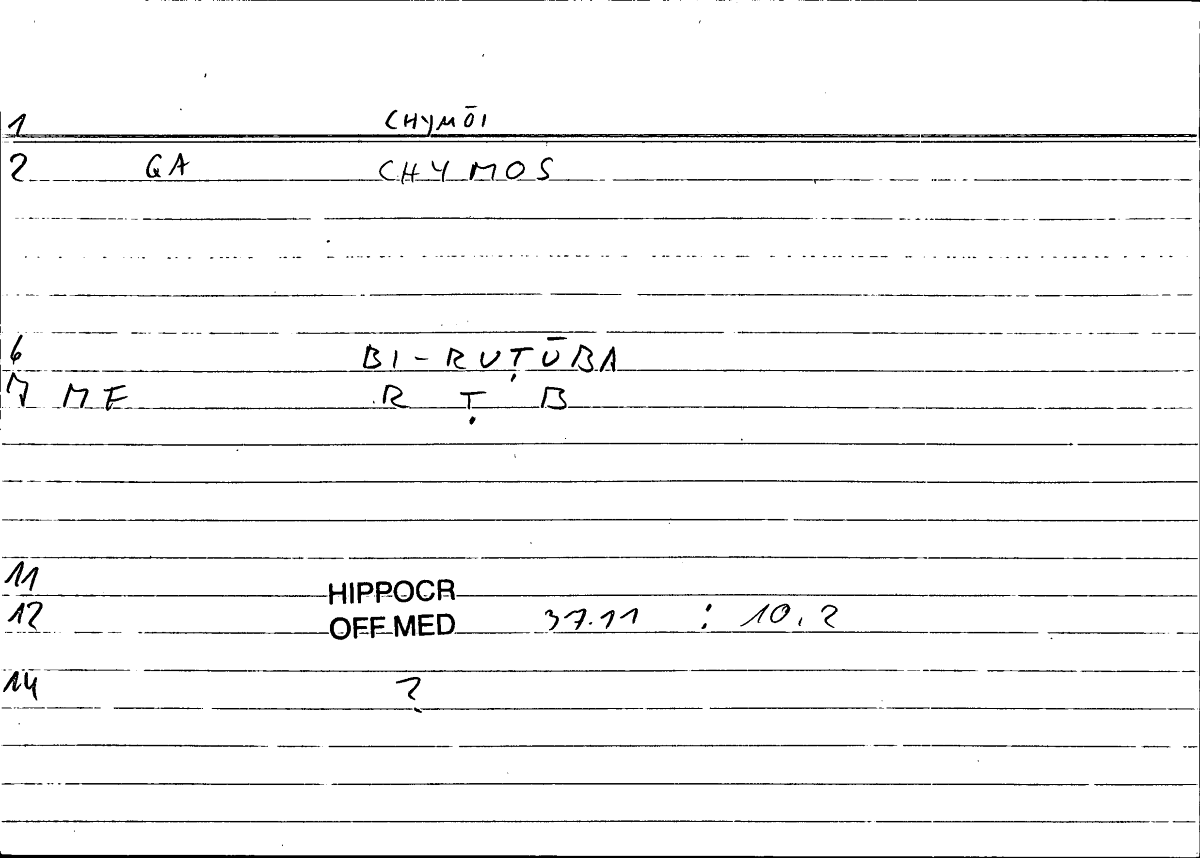 1 CHYMŌI
2 GA CHYMOS
6 BI-RUṬŪBA
7 ME R Ṭ B
11 HIPPOCR
12 OFF MED 37.11 : 10,2
14 ?